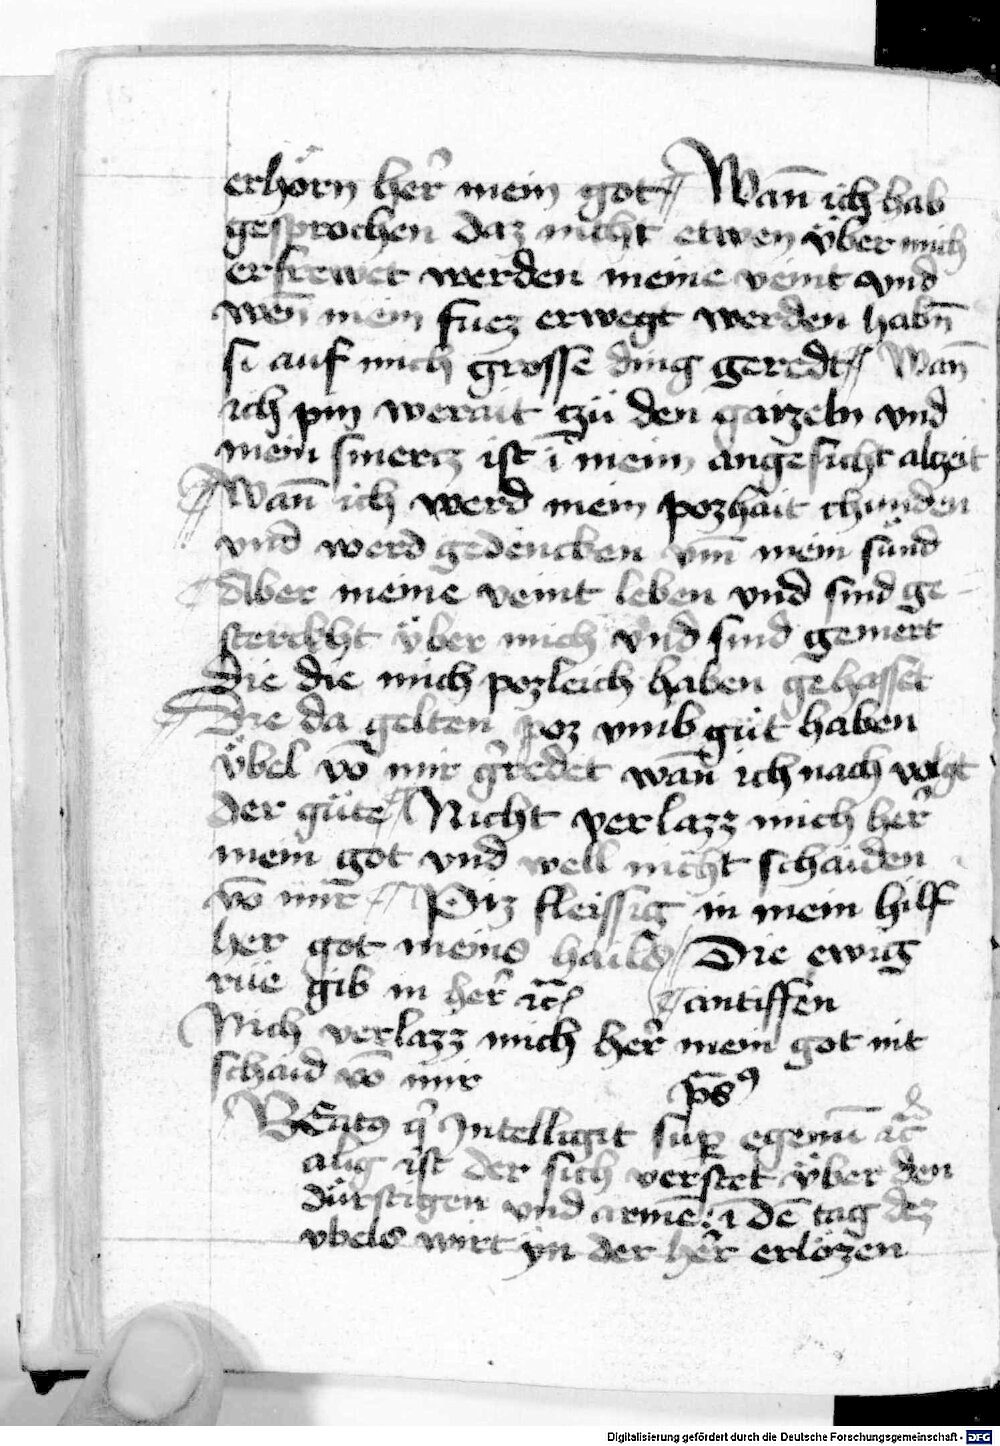 erhörn her̃ mein got Wañ ich hab
gesprochen daz nicht etwen vͤber mich
erfrewet werden meine veint vnd
wen̄ mein fuez erwegt werden habn̄
si auf mich grosse ding geredt Wan̄
ich pin werait tzü den gaizeln vnd
mein smertz ist ī mein angesicht alzeit
Wan̄ ich werd mein pozhait chunden
vnd werd gedencken vm̄ mein sünd
Aber meine veint leben vnd sind ge
sterckht vͤber mich vnd sind gemert
die die mich pozleich haben gehasset
Die da gelten poz vmb güt haben
vͤbel vō mir geredet wan̄ ich nach volgt
der güte Nicht verlazz mich her̃
mein got vnd well nicht schaiden
vō mir Piz fleissig in mein hilf
her got meins hails Die ewig
rüe gib in her̃ ꝛc̄ antiffen
Nich verlazz mich her̃ mein got nit
schaid vō mir ps̄
BEatꝰ q̄ Intelligit sup̱ egenū ꝛc̄
alig ist der sich verstet vͤber den
dürstigen vnd armē: ī dē tag dez
vbels wirt yn der her̃ erlözen
Digitalisierung gefördert durch die Deutsche Forschungsgemeinschaft - DFG